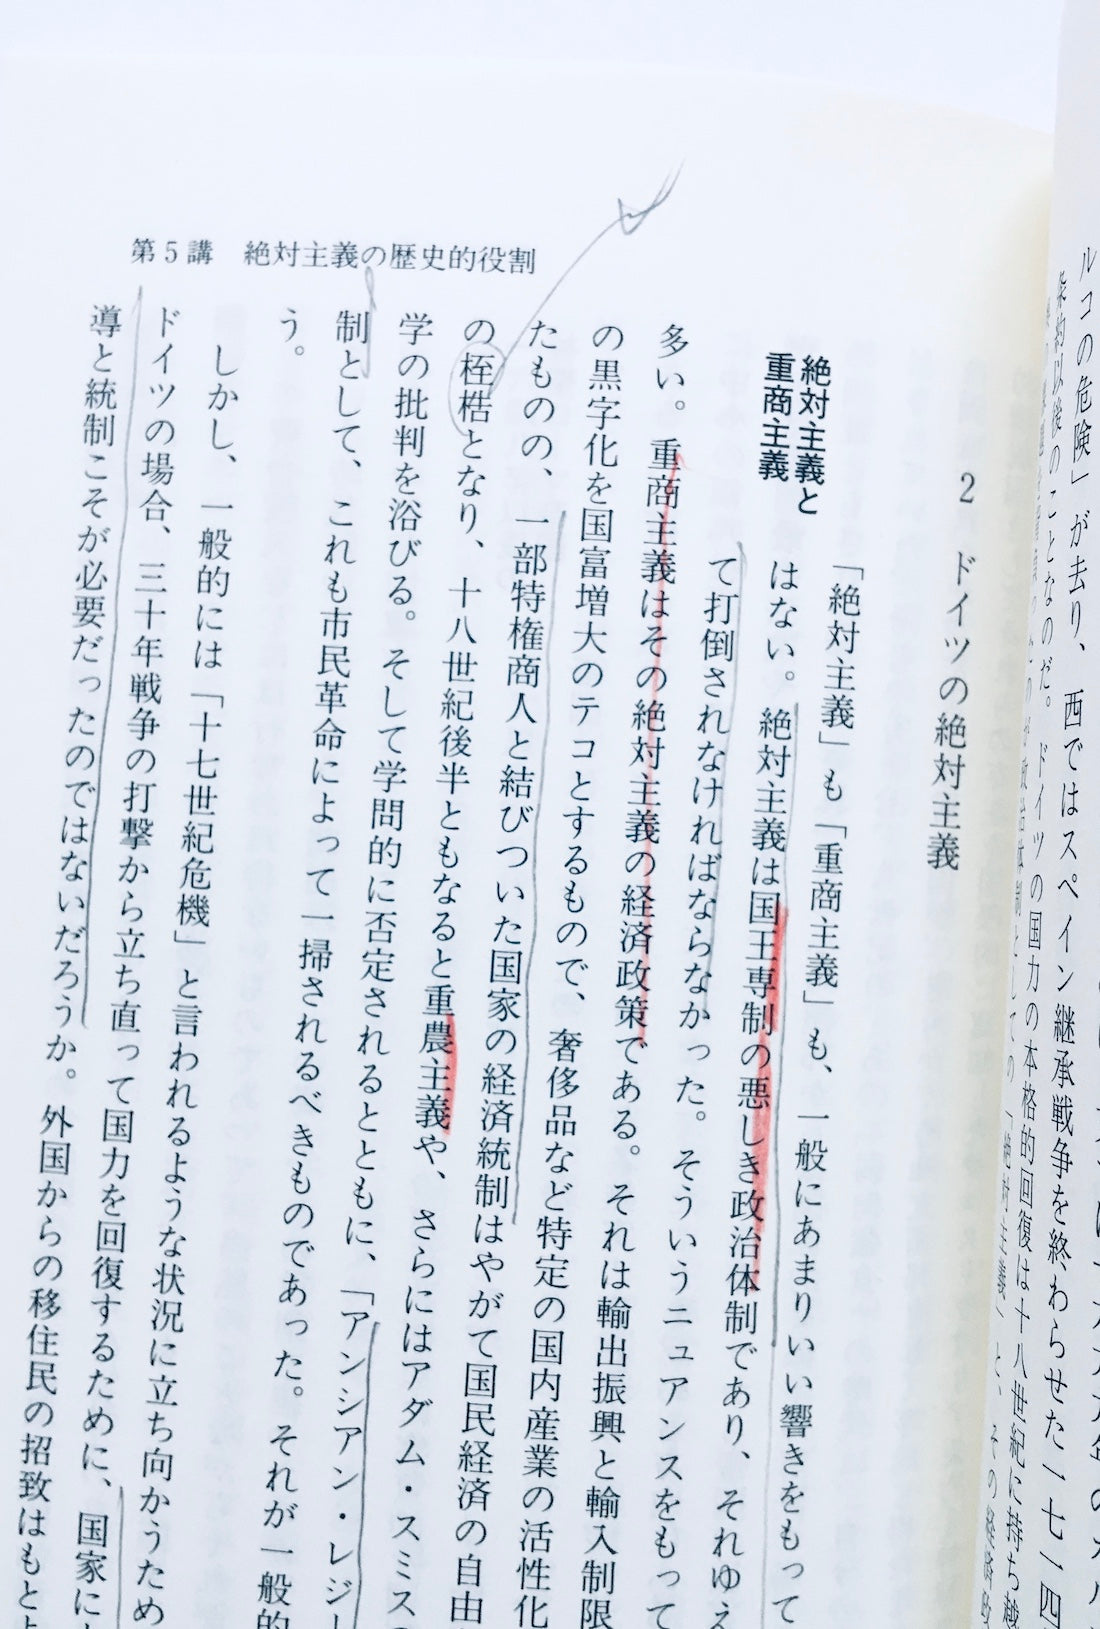 ルコの危険」が去り、西ではスペイン継承戦争を終わらせた一七一四
条約以後のことなのだ。ドイツの国力の本格的回復は十八世紀に持ち越
2 ドイツの絶対主義
絶対主義と
重商主義
「絶対主義」も「重商主義」も、一般にあまりいい響きをもって
はない。絶対主義は国王専制の悪しき政治体制であり、それゆえ
て打倒されなければならなかった。そういうニュアンスをもって
多い。重商主義はその絶対主義の経済政策である。それは輸出振興と輸入制限
の黒字化を国富増大のテコとするもので、奢侈品など特定の国内産業の活性化
たものの、一部特権商人と結びついた国家の経済統制はやがて国民経済の自由
の桎梏となり、十八世紀後半ともなると重農主義や、さらにはアダム・スミス
学の批判を浴びる。そして学問的に否定されるとともに、「アンシアン・レジ
制として、これも市民革命によって一掃されるべきものであった。それが一般的
う。
しかし、一般的には「十七世紀危機」と言われるような状況に立ち向かうため
ドイツの場合、三十年戦争の打撃から立ち直って国力を回復するために、国家に
導と統制こそが必要だったのではないだろうか。外国からの移住民の招致はもと
第5講 絶対主義の歴史的役割